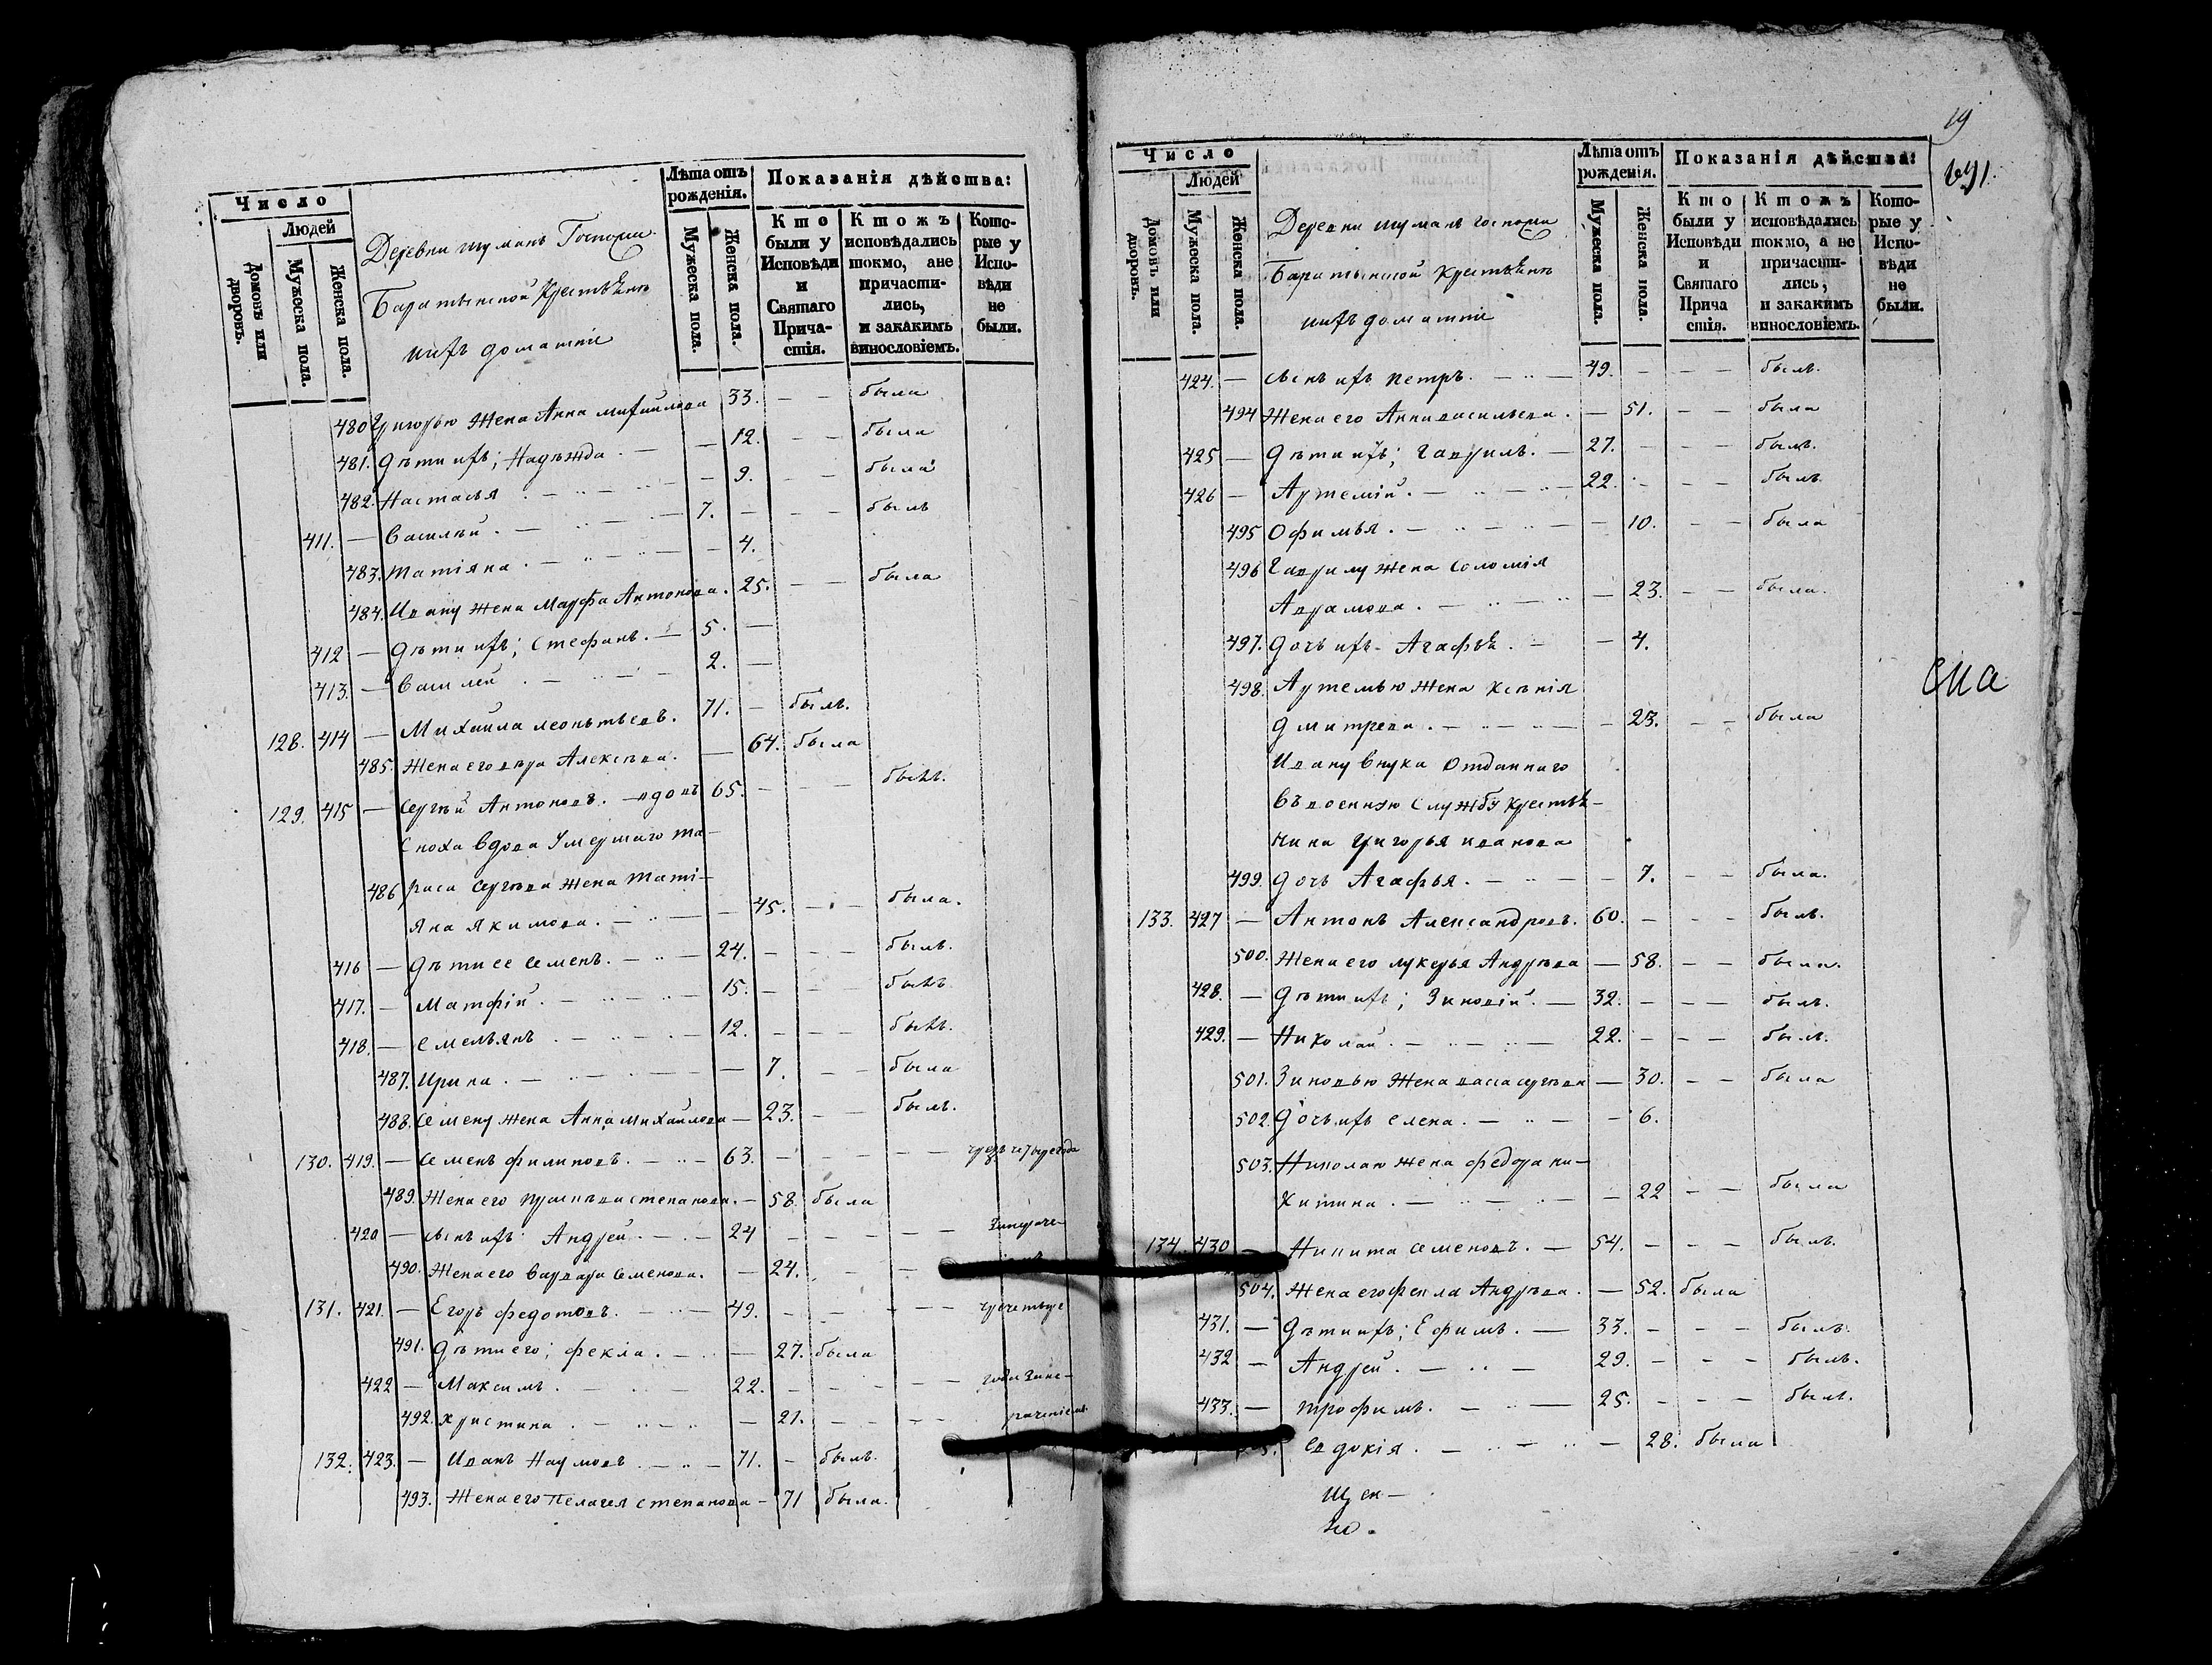 Число
Людей
Домовъ или дворовъ.
Мужеска пола.
Женска пола.
Деревни туманъ Госпожи
Баратынской Крестьяне
ихъ домашніе
Лѣта отъ рожденія.
Мужеска пола.
Женска пола.
Показанія дѣйства:
Кто были у Исповѣди и Святаго Прича-стія.
Ктожъ исповѣдались токмо, а не причасти-лись, и закакимъ винословіемъ.
Кото-рые у Испо-вѣди не были.
480 Григорью Жена Анна михайлова 33. — — была
481. Дѣти ихъ; Надѣжда. — — 12. — — была
482. Настасья . — — 9. — — была
411. — Василей. — 7. — — — былъ
483. татіяна. — — 4.
484. Ивану Жена Марфа Антонова. 25. — — была
412 — Дѣти ихъ; Стефанъ. — 5. —
413. — Василей . — 2. —
128. 414 — Михаила леонтьевъ. 71. — былъ.
485. Жена его вѣра Алексѣва. — 64. была
129. 415 — Сергѣй Антоновъ. — вдовъ 65. — — — былъ.
Сноха вдова Умершаго та-
486 раса Сергѣва Жена тати-
яна якимова. — — 45. — — была.
416 — Дѣти ее Семенъ. — 24. — — — былъ.
417. — Матфій. — 15. — — — былъ
418. — емельянъ . — 12. — — — былъ.
487. Ирина. — — 7. — — была
488. Семену Жена Анна михайлова — 23. — — былъ.
130. 419. — Семенъ филиповъ. — 63. — — — — — чрезъ четыре года
489. Жена его степанова. — 58. была
420 — сынъ ихъ Андрей. — 24 — — — — —
490. Жена его варвара Семенова. — 24. — — —
131. 421. — Егоръ федотовъ. — 49. — — — — —
491. Дѣти его; фекла. — — 27. была
422 — Максимъ. — 22. — — — — — года
492. христина . — — 21. — — — —
132. 423. — Иванъ Наумовъ. — 71. — былъ.
493. Жена его Пелагея степанова — 71 была.
19
Число
Людей
Домовъ или дворовъ.
Мужеска пола.
Женска пола.
Деревни туманъ госпожи
Баратынской Крестьяне
ихъ домашніе
Лѣта отъ рожденія.
Мужеска пола.
Женска пола.
Показанія дѣйства:
Кто были у Исповѣди и Святаго Прича стія.
Ктожъ исповѣдались токмо, а не причасти-лись, и закакимъ винословіемъ.
Кото-рые у Испо-вѣди не были.
424. — сынъ ихъ петръ. — 49. — — — былъ.
494 Жена его Анна васильева. — 51. — — была
425 — Дѣти ихъ; гаврилъ. — 27. — — — былъ.
426 — Артемій. — 22. — — — былъ.
495 Офимья. — — 10. — — была
496 Гаврилу Жена Соломія
Аврамова. — — 23. — — была.
497. Дочь ихъ Агафья. — — 4.
498. Артемью Жена ксѣнія
дмитрева. — — 23. — — была
Ивану внука отданнаго
въ военную службу крестья-
нина григорья иванова
499. дочь Агафья. — — 7. — — была.
133. 427 — Антонъ Александровъ. 60. — — — былъ.
500. Жена его лукерья Андрѣва — 58. — — была.
428. — Дѣти ихъ; Зиновій. — 32. — — — былъ.
429. — Николай. — 22. — — — былъ.
501. Зиновью Жена васа сергѣва — 30. — — была
502. Дочь ихъ елена. — — 6.
503. Николаю Жена федора ни-
китина. — — 22 — — была
134. 430 — Никита Семеновъ. — 54. — — — былъ.
504. Жена его фекла Андрѣва. — 52. была
431. — Дѣти ихъ; Ефимъ. — 33. — — — былъ.
432 — Андрей. — 29. — — — былъ.
433. — трофимъ. — 25. — — — былъ.
Евдокія. — — 28. была